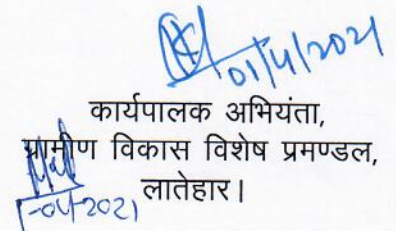 01/4/2021
कार्यपालक अभियंता,
ग्रामीण विकास विशेष प्रमण्डल,
लातेहार।
1-04-2021